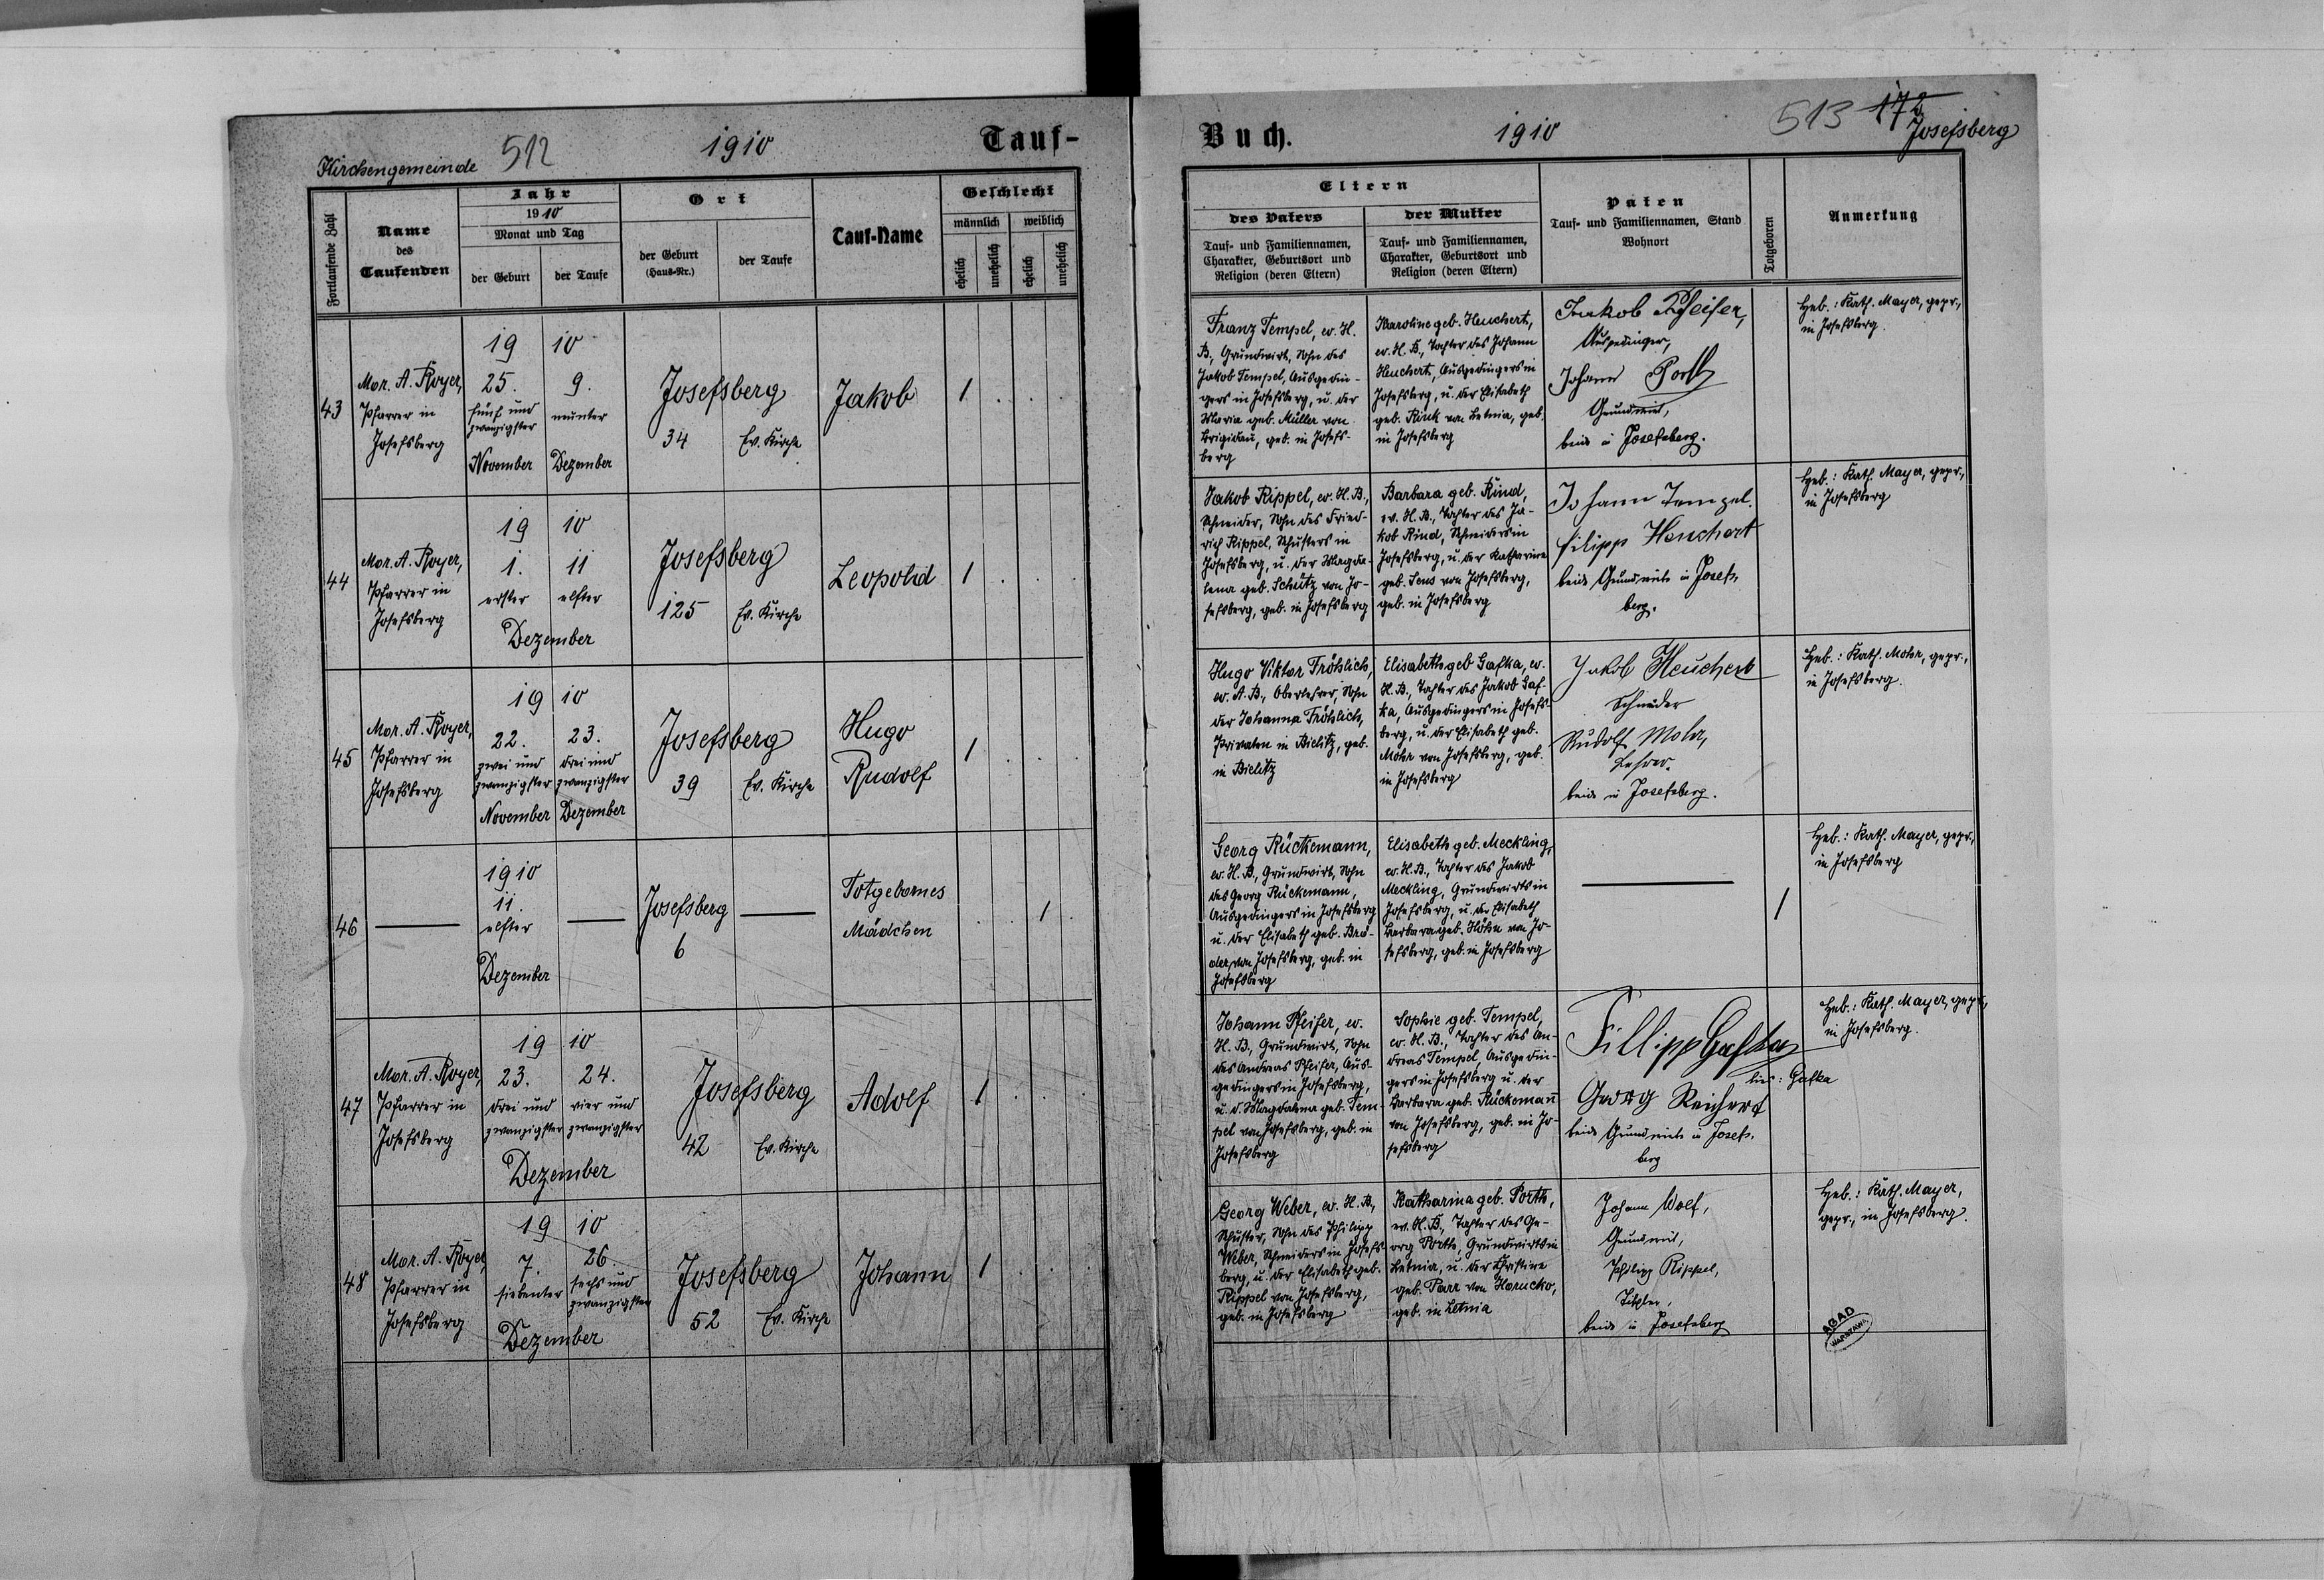 Kirchengemeinde
512
1910
Tauf-
Fortlaufende Zahl
Name
des
Taufenden
Jahr
1910
Monat und Tag
der Geburt
der Taufe
Ort
der Geburt
(Haus-Nr.)
der Taufe
Tauf-Name
Geschlecht
männlich
weiblich
ehelich
unehelich
ehelich
unehelich
43
Mor. A. Royer,
Pfarrer in
Josefsberg
19 10
25. 9.
fünf und neunter
zwanzigster
November Dezember
Josefsberg
34 Ev. Kirche
Jakob
1 . . .
44
Mor. A. Royer,
Pfarrer in
Josefsberg
19 10
1. 11
erster elfter
Dezember
Josefsberg
125 Ev. Kirche
Leopold
1 . . .
45
Mor. A. Royer,
Pfarrer in
Josefsberg
19 10
22. 23.
zwei und drei und
zwanzigster zwanzigster
November Dezember
Josefsberg
39 Ev. Kirche
Hugo
Rudolf
1 . . .
46
1910
11.
elfter
Dezember
Josefsberg
6
Totgebornes
Mädchen
. . 1 .
47
Mor. A. Royer,
Pfarrer in
Josefsberg
19 10
23. 24.
drei und vier und
zwanzigster zwanzigster
Dezember
Josefsberg
42 Ev. Kirche
Adolf
1 . . .
48
Mor. A. Royer,
Pfarrer in
Josefsberg
19 10
7. 26.
siebenter sechs und
zwanzigster
Dezember
Josefsberg
52 Ev. Kirche
Johann
1 . . .
Buch.
1910
513 172
Josefsberg
Eltern
des Vaters
Tauf- und Familiennamen,
Charakter, Geburtsort und
Religion (deren Eltern)
der Mutter
Tauf- und Familiennamen,
Charakter, Geburtsort und
Religion (deren Eltern)
Paten
Tauf- und Familiennamen, Stand
Wohnort
Totgeboren
Anmerkung
Franz Tempel, ev. H.
B., Grundwirt, Sohn des
Jakob Tempel, Ausgedin-
gers in Josefsberg, u. der
Maria geb. Müller von
Brigidau, geb. in Josefs-
berg
Karoline geb. Heuchert,
ev. H. B., Tochter des Johann
Heuchert, Ausgedingers in
Josefsberg, u. der Elisabeth
geb. Rink von Letnia, geb.
in Josefsberg
Jakob Pfeifer,
Ausgedinger,
Johann Porth
Grundwirt,
beide in Josefsberg.
Heb.: Kath. Mayer, gepr.,
in Josefsberg.
Jakob Rippel, ev. H. B.,
Schneider, Sohn des Fried-
rich Rippel, Schusters in
Josefsberg, u. der Magda-
lena geb. Schütz von Jo-
sefsberg, geb. in Josefsberg
Barbara geb. Rind,
ev. H. B., Tochter des Ja-
kob Rind, Schneiders in
Josefsberg, u. der Katharina
geb. Sens von Josefsberg,
geb. in Josefsberg
Johann Tempel
filipp Heuchert
beide Grundwirte in Josefs-
berg.
Heb.: Kath. Mayer, gepr.,
in Josefsberg
Hugo Viktor Fröhlich,
ev. A. B., Oberlehrer, Sohn
der Johanna Fröhlich,
Privaten in Bielitz, geb.
in Bielitz
Elisabeth geb Gafka, ev.
H. B., Tochter des Jakob Gaf-
ka, Ausgedingers in Josefs-
berg, u. der Elisabeth geb.
Mohr von Josefsberg, geb.
in Josefsberg
Jakob Heuchert
Schneider
Rudolf Mohr,
Lehrer.
beide in Josefsberg.
Heb.: Kath. Mohr, gepr.,
in Josefsberg.
Georg Rückemann,
ev. H. B., Grundwirt, Sohn
des Georg Rückemann,
Ausgedingers in Josefsberg
u. der Elisabeth geb. Bre-
der, von Josefsberg, geb. in
Josefsberg
Elisabeth geb. Meckling,
ev. H. B., Tochter des Jakob
Meckling, Grundwirts in
Josefsberg, u. der Elisabeth
Barbara geb. Höhn von Jo-
sefsberg, geb. in Josefsberg
1
Heb.: Kath. Mayer, gepr.,
in Josefsberg
Johann Pfeifer, ev.
H. B., Grundwirt, Sohn
des Andreas Pfeifer, Aus-
gedingers in Josefsberg,
u. d. Magdalena geb. Tem-
pel von Josefsberg, geb. in
Josefsberg
Sophie geb. Tempel,
ev. H. B., Tochter des An-
dreas Tempel, Ausgedin-
gers in Josefsberg u. der
Barbara geb. Rückemann
von Josefsberg, geb. in Jo-
sefsberg
Fillipp Gafka
lies: Gafka
Georg Reichert
beide Grundwirte in Josefs-
berg
Heb.: Kath. Mayer, gepr.,
in Josefsberg.
Georg Weber, ev. H. B.,
Schuster, Sohn des Philipp
Weber, Schneiders in Josefs-
berg, u. der Elisabeth geb.
Rippel von Josefsberg,
geb. in Josefsberg
Katharina geb. Porth,
ev. H. B., Tochter des Ge-
org Porth, Grundwirts in
Letnia, u. der Christine
geb. Parr von Horucko,
geb. in Letnia
Johann Wolf,
Grundwirt,
Philipp Rippel,
Tischler,
beide in Josefsberg
Heb.: Kath. Mayer,
gepr., in Josefsberg.
AGAD
WARSZAWA